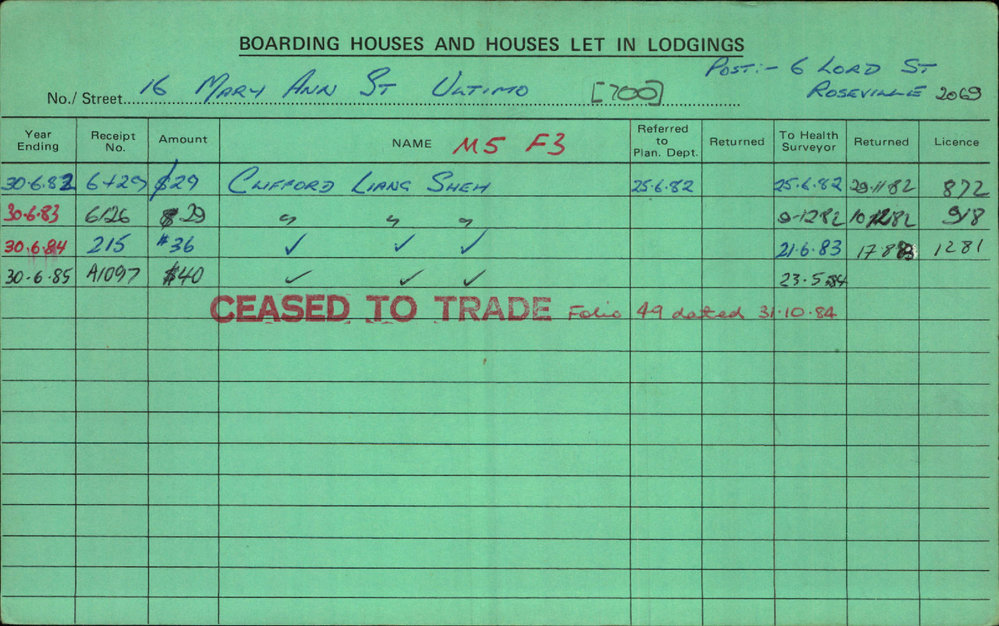 BOARDING HOUSES AND HOUSES LET IN LODGINGS
POST:- 6 LORD ST
No./ Street 16 MARY ANN ST ULTIMO [700] ROSEVILLE 2069
Year Ending Receipt No. Amount NAME M5 F3 Referred to Plan. Dept. Returned To Health Surveyor Returned Licence
30.6.82 $29 CLIFFORD LIANG SHEH 25.6.82 25.6.82 29.11.82 872
30.6.83 6126 $29 " " " 9-12 82 82 918
30.6.84 215 $36 ✓ ✓ ✓ 21.6.83 17.8 1281
30.6.85 A1097 $40 ✓ ✓ ✓ 23.5.84
CEASED TO TRADE Folio 49 dated 31.10.84